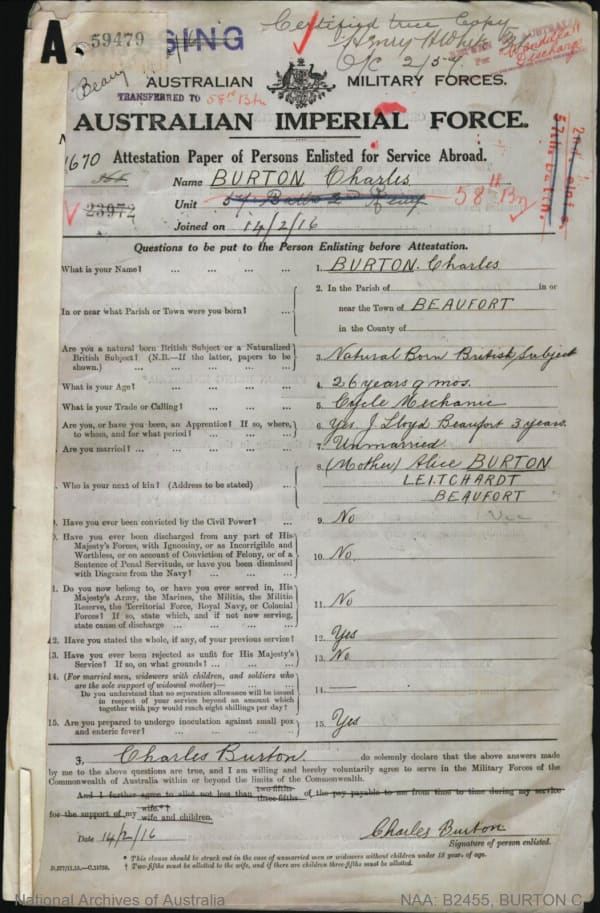 A.
59479
SING
Certified true Copy
O/C 2/57
Discharge
AUSTRALIAN MILITARY FORCES.
TRANSFERRED TO 58th Btn
AUSTRALIAN IMPERIAL FORCE.
1670 Attestation Paper of Persons Enlisted for Service Abroad.
Name BURTON Charles
Unit 58th Bn
23972
57th BATTN.
Joined on 14/2/16
Questions to be put to the Person Enlisting before Attestation.
What is your Name? ... ... ... ... 1. BURTON. Charles
In or near what Parish or Town were you born? ... 2. In the Parish of in or
near the Town of BEAUFORT
in the County of
Are you a natural born British Subject or a Naturalized
British Subject? (N.B.—If the latter, papers to be
shown.) ... ... ... ... ... 3. Natural Born British Subject
What is your Age? ... ... ... ... 4. 26 years 9 mos.
What is your Trade or Calling? ... ... ... 5. Cycle Mechanic
Are you, or have you been, an Apprentice? If so, where,
to whom, and for what period? ... ... ... 6. Yes. J. Lloyd Beaufort 3 years.
Are you married? ... ... ... ... 7. Unmarried
Who is your next of kin? (Address to be stated) ... 8. (Mother) Alice BURTON
LEITCHARDT
BEAUFORT
Have you ever been convicted by the Civil Power? ... 9. No
Have you ever been discharged from any part of His
Majesty's Forces, with Ignominy, or as Incorrigible and
Worthless, or on account of Conviction of Felony, or of a
Sentence of Penal Servitude, or have you been dismissed
with Disgrace from the Navy? ... ... ... 10. No
1. Do you now belong to, or have you ever served in, His
Majesty's Army, the Marines, the Militia, the Militia
Reserve, the Territorial Force, Royal Navy, or Colonial
Forces? If so, state which, and if not now serving,
state cause of discharge ... ... ... ... 11. No
12. Have you stated the whole, if any, of your previous service? 12. Yes
13. Have you ever been rejected as unfit for His Majesty's
Service? If so, on what grounds? ... ... ... 13. No
14. (For married men, widowers with children, and soldiers who
are the sole support of widowed mother)— ... ...
Do you understand that no separation allowance will be issued
in respect of your service beyond an amount which
together with pay would reach eight shillings per day? 14. —
15. Are you prepared to undergo inoculation against small pox
and enteric fever? ... ... ... ... 15. Yes
I, Charles Burton. do solemnly declare that the above answers made
by me to the above questions are true, and I am willing and hereby voluntarily agree to serve in the Military Forces of the
Commonwealth of Australia within or beyond the limits of the Commonwealth.
And I further agree to allot not less than two-fifths three-fifths of the pay payable to me from time to time during my service
for the support of my wife.*† wife and children.
Date 14/2/16 Charles Burton
Signature of person enlisted.
* This clause should be struck out in the case of unmarried men or widowers without children under 18 years of age.
† Two-fifths must be allotted to the wife, and if there are children three-fifths must be allotted.
National Archives of Australia NAA: B2455, BURTON C